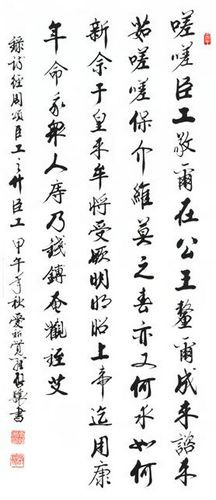 嗟嗟臣工敬爾在公王釐爾成來諮來
茹嗟嗟保介維莫之春亦又何求如何
新畬于皇來牟將受厥明明昭上帝迄用康
年命我眾人庤乃錢鎛奄觀銍艾
錄詩經周頌臣工之什臣工 甲午年秋愛新覺羅啟驤書